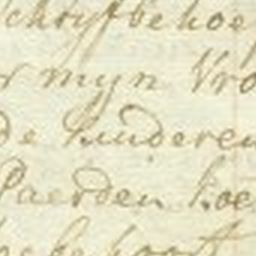 schryfbehoe
r myn Vro
de kinderen
Paerden koe